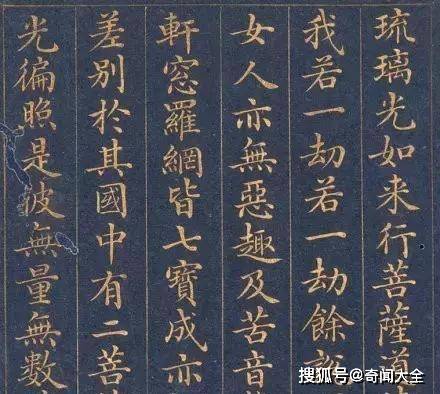 琉璃光如来行菩薩道
我若一劫若一劫餘說
女人亦無惡趣及苦音
軒窓羅網皆七寶成亦
差别於其國中有二菩
光徧照是彼無量無數
搜狐号@奇闻大全